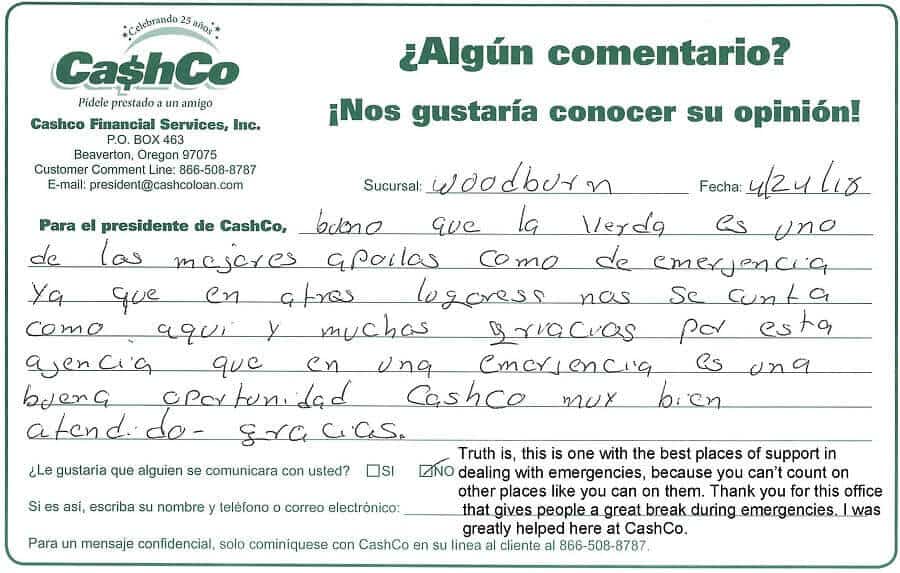 Celebrando 25 años
Ca$hCo
Pídele prestado a un amigo
Cashco Financial Services, Inc.
P.O. BOX 463
Beaverton, Oregon 97075
Customer Comment Line: 866-508-8787
E-mail: president@cashcoloan.com
¿Algún comentario?
¡Nos gustaría conocer su opinión!
Sucursal: Woodburn Fecha: 4/24/18
Para el presidente de CashCo, bueno que la Verda es uno
de las mejores apoilas como de emerjencia
Ya que en atres logaress nas se cunta
como aqui y muchas griacias por esta
ajencia que en una emerjencia es una
buena oportunidad Cashco muy bien
atendido- gracias.
¿Le gustaría que alguien se comunicara con usted? SI NO
Si es así, escriba su nombre y teléfono o correo electrónico:
Truth is, this is one with the best places of support in
dealing with emergencies, because you can't count on
other places like you can on them. Thank you for this office
that gives people a great break during emergencies. I was
greatly helped here at CashCo.
Para un mensaje confidencial, solo cominíquese con CashCo en su línea al cliente al 866-508-8787.